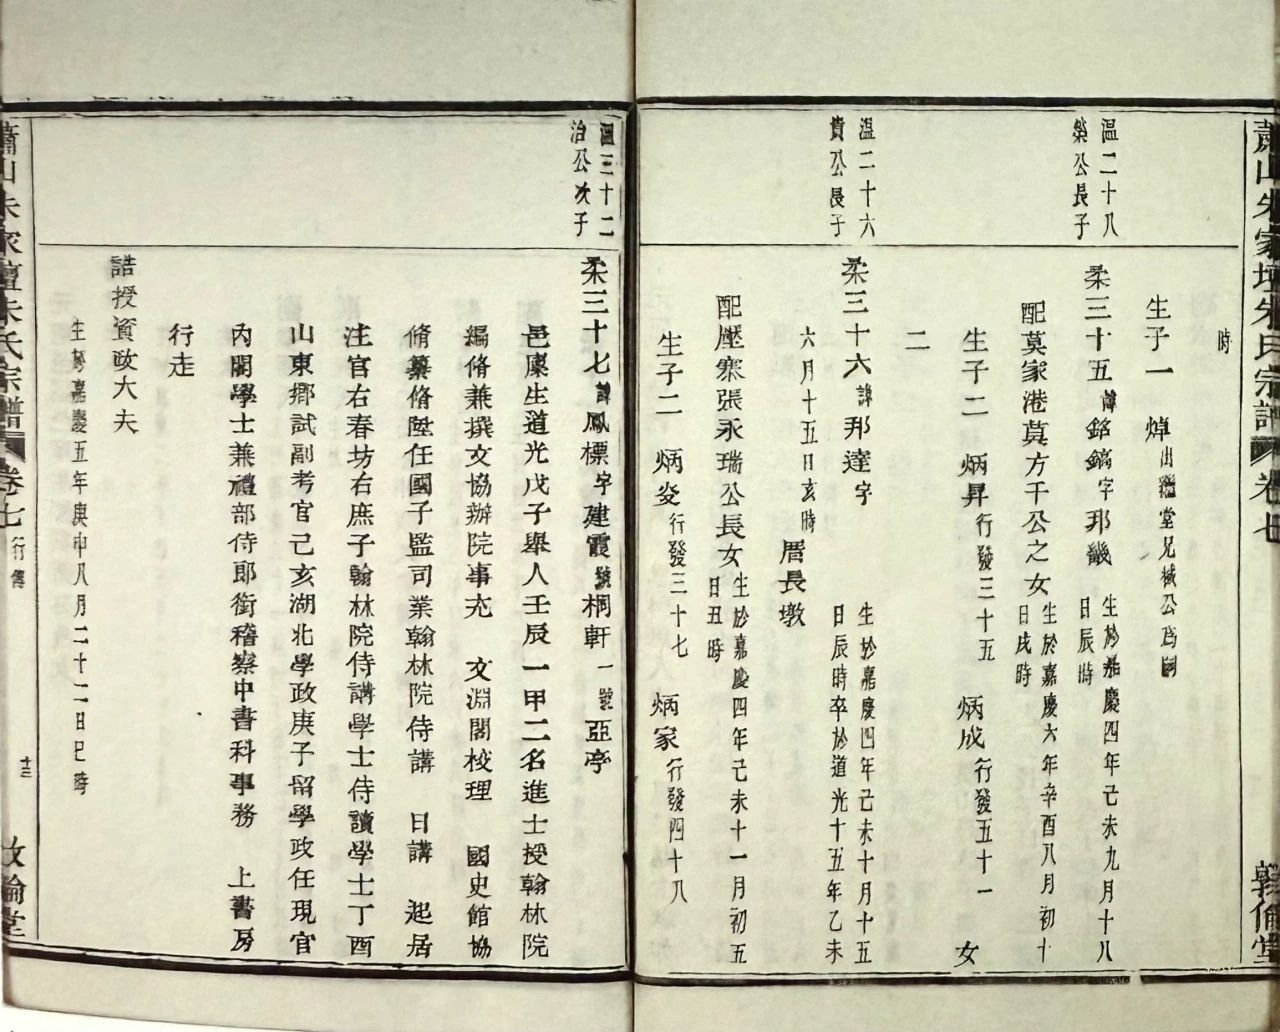 蕭山朱家壇朱氏宗譜
卷七
敦倫堂
時
生子一 焯出繼堂兄棫公為嗣
溫二十八
榮公長子
柔三十五諱銘鎬字邦畿 生於嘉慶四年己未九月十八
日辰時
配莫家港莫方千公之女生於嘉慶六年辛酉八月初十
日戌時
生子二 炳昇行發三十五 炳成行發五十一 女
二
溫二十六
貴公長子
柔三十六諱邦達字 生於嘉慶四年己未十月十五
日辰時卒於道光十五年乙未
六月十五日亥時 厝長墩
配歷寨張永瑞公長女生於嘉慶四年己未十一月初五
日丑時
生子二 炳炎行發三十七 炳家行發四十八
溫三十二
治公次子
柔三十七諱鳳標字建霞號桐軒一號亞亭
邑廩生道光戊子舉人壬辰一甲二名進士授翰林院
編脩兼撰文協辦院事充 文淵閣校理 國史館協
脩纂脩陞任國子監司業翰林院侍講 日講 起居
注官右春坊右庶子翰林院侍講學士侍讀學士丁酉
山東鄉試副考官己亥湖北學政庚子留學政任現官
內閣學士兼禮部侍郎銜稽察中書科事務 上書房
行走
誥授資政大夫
生於嘉慶五年庚申八月二十二日巳時
蕭山朱家壇朱氏宗譜
卷七 行傳
十三
敦倫堂